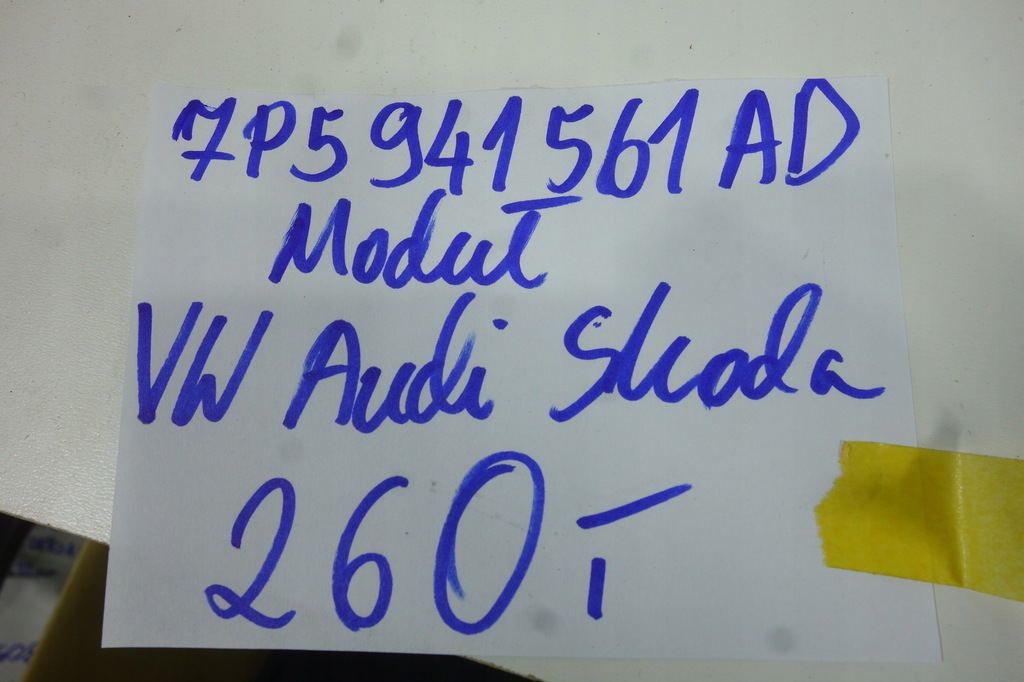 7P5941561AD
Moduł
VW Audi Skoda
260,-